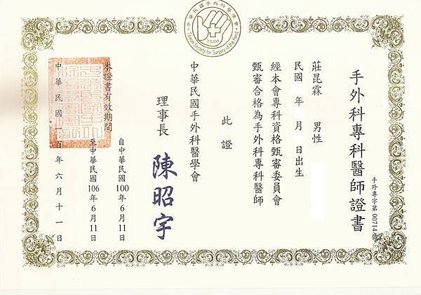 手外科專科醫師證書
手外專字第00714號
莊昆霖　男性
民國　年　月　日出生
經本會專科資格甄審委員會
甄審合格為手外科專科醫師
此證
中華民國手外科醫學會
理事長 陳昭宇
本證書有效期間
自中華民國100年6月11日
至中華民國106年6月11日
中華民國　百年六月十一日